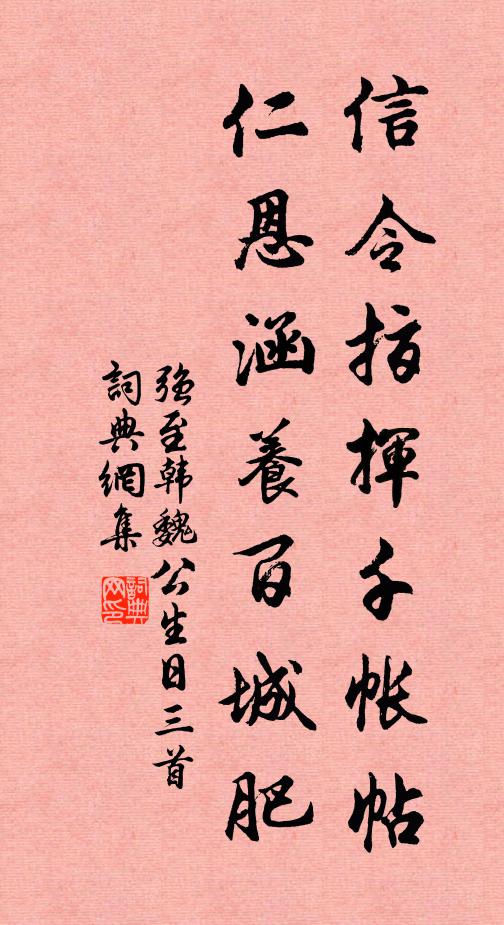 信令指揮千帐帖
仁恩涵養百城肥
强至韩魏公生日三首
詞典網集
詞典网印